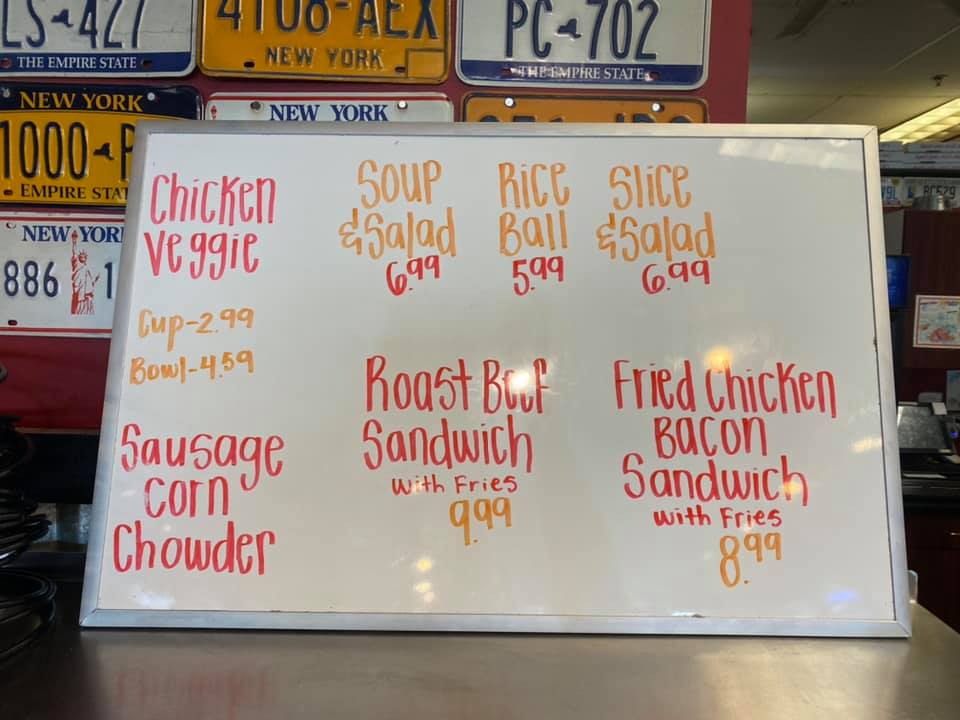 LS 427
THE EMPIRE STATE
4108-AEX
NEW YORK
PC 702
THE EMPIRE STATE
NEW YORK
1000
EMPIRE STA
NEW YORK
NEW YOR
886 1
Chicken
Veggie
Cup-2.99
Bowl-4.59
Sausage
Corn
Chowder
Soup
& Salad
6.99
Rice
Ball
5.99
Slice
& Salad
6.99
Roast Beef
Sandwich
with Fries
9.99
Fried Chicken
Bacon
Sandwich
with Fries
8.99